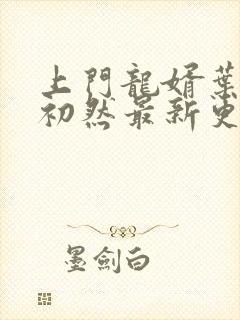 上門龍婿葉
初然最新更
墨劍白